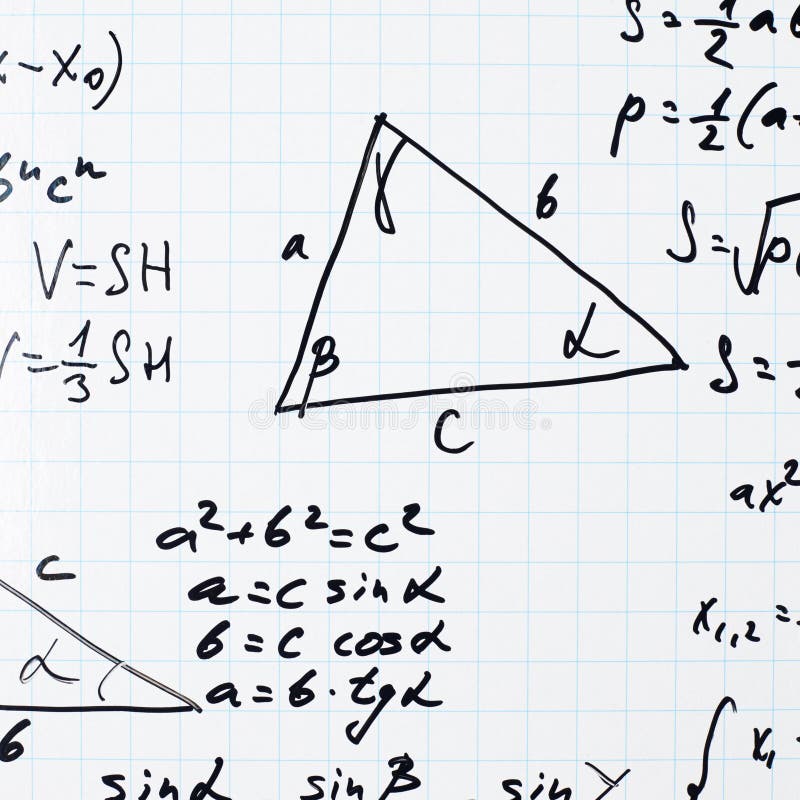 S = 1/2 ab
x - x₀)
p = 1/2 (a
bⁿcⁿ
γ
b
a
S = √p(
V = SH
V = 1/3 SH
β
α
S =
C
ax²
a² + b² = c²
c
a = c sin α
b = c cos α
x₁,₂ =
α
a = b · tg α
b
∫ x₁
sin α sin β sin γ
dreamstime